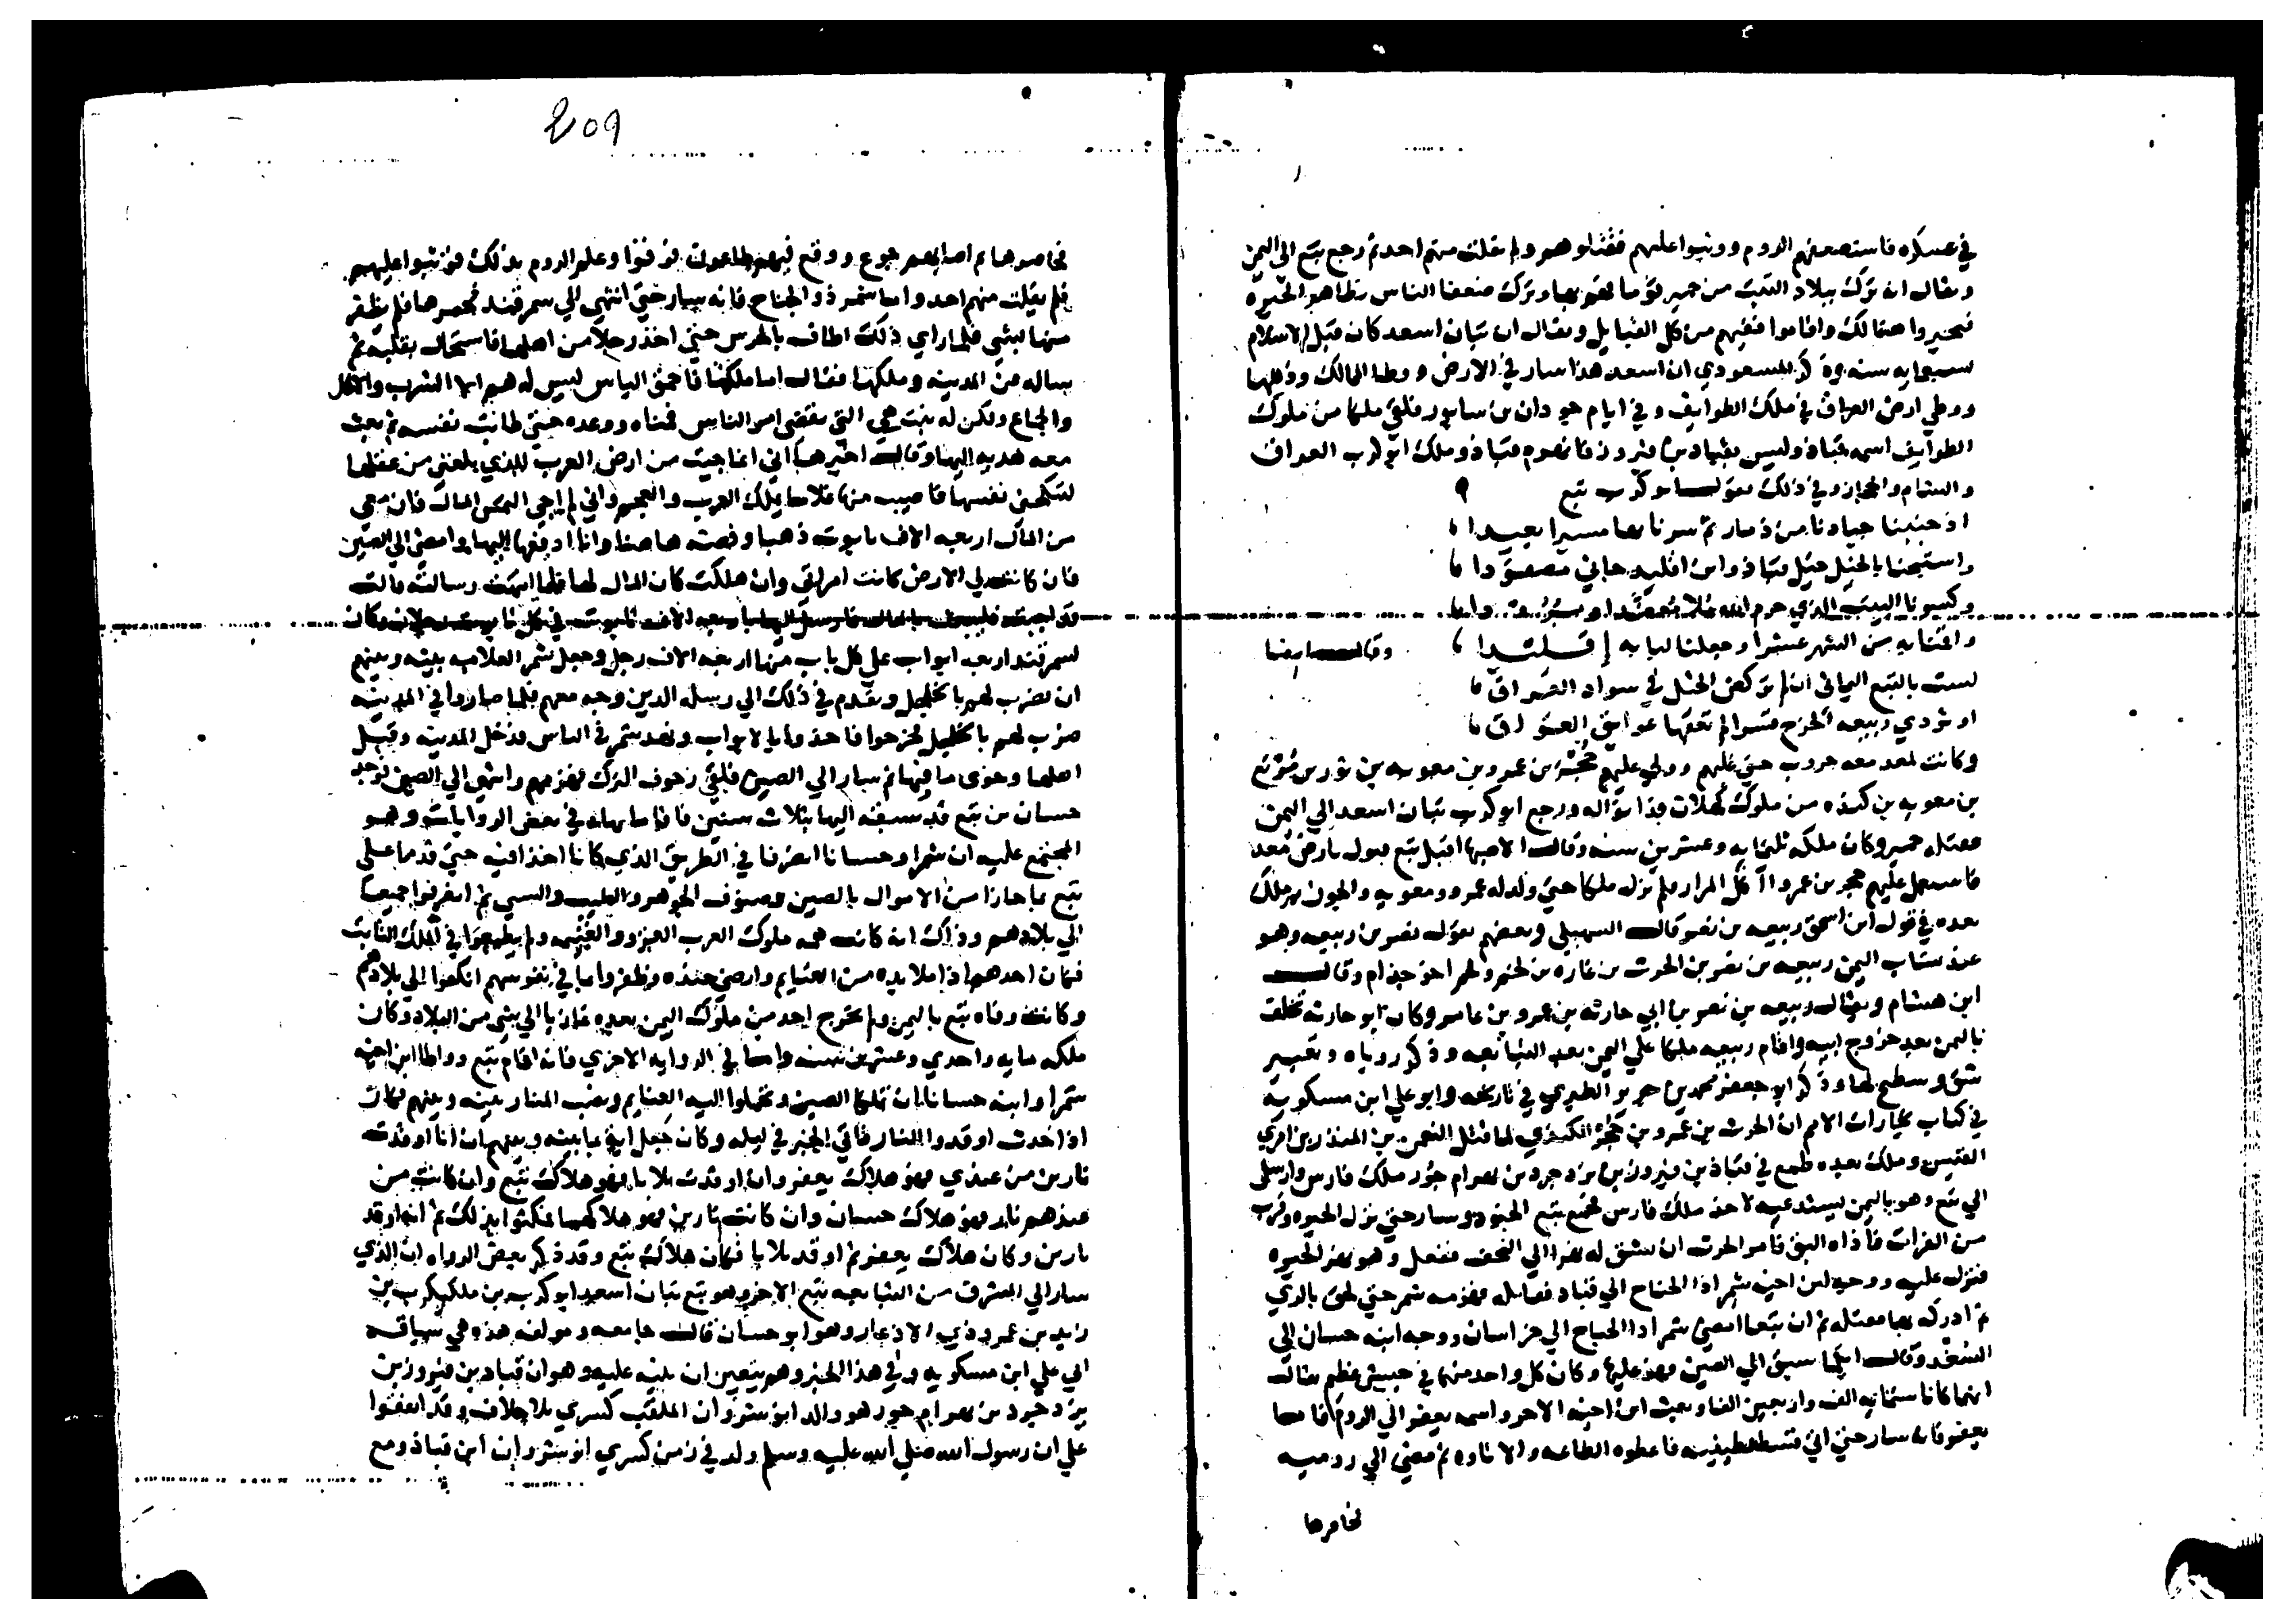 في عسكره فاستضعفهم الروم ووثبوا عليهم فقتلوهم ولم يفلت منهم احد ثم رجع تبع الى اليمن
ويقال انه ترك ببلاد التبت من حمير قوما بها وترك ضعفا الناس بظاهر الحيره
فتحيروا هنالك واقاموا ففيهم من كل القبايل ويقال ان تبان اسعد كان قبل الاسلام
بسبعمايه سنه وذكر المسعودي ان اسعد هذا سار في الارض ووطا الممالك وذللها
ووطي ارض العراق في ملك الطوايف وفي ايام جودان بن سابور فلقي ملكا من ملوك
الطوايف اسمه قباذ وليس بقباد بن فيروز فانهزم قباذ وملك ابو كرب العراق
والشام والحجاز وفي ذلك يقول ابو كرب تبع
اذ جنبنا جيادنا من ذمار ثم سرنا بها مسيرا بعيدا
واستبحنا بالخيل خيل قباذ وابن اقليد جاني مصفودا
وكسونا البيت الذي حرم الله ملا معضدا وبرودا
واقمنا به من الشهر عشرا وجعلنا لبابه إقليدا وقال ايضا
لست بالتبع اليماني ان لم تركض الخيل في سواد العراق
او تؤدي ربيعه الخرج قسرا لم تعقها عوايق العواق
وكانت لمعد معه حروب حتى غلبهم وولي عليهم حجر بن عمرو بن معويه بن ثور بن مرتع
بن معويه بن كنده من ملوك كهلان فدانوا له ورجع ابو كرب تبان اسعد الي اليمن
فقتله حمير وكان ملكه ثلثمايه وعشرين سنه وقال الاصبهاني اقبل تبع فنزل بارض معد
فاستعمل عليهم حجر بن عمرو اآكل المرار فلم يزل ملكا حتى ولد له عمرو ومعويه والجون ثم ملك
بعده في قول ابن اسحق ربيعه بن نصر قال السهيلي وبعضهم يقول نصر بن ربيعه وهو
عند نساب اليمن ربيعه بن نصر بن الحرث بن نماره بن لخم ولخم اخو جذام وقال
ابن هشام ويقال ربيعه بن نصر بن ابي حارثه بن عمرو بن عامر وكان ابو حارثه تخلف
باليمن بعد خروج ابيه واقام ربيعه ملكا علي اليمن بعد التبابعه وذكر روياه وتعبير
شق وسطيح لها وذكر ابو جعفر محمد بن جرير الطبري في تاريخه وابو علي ابن مسكويه
في كتاب تجارات الامم ان الحرث بن عمرو بن حجر الكندي لما قتل النعمن بن المنذر بن امري
القيس وملك بعده طمع في قباذ بن فيروز بن يزدجرد بن بهرام جور ملك فارس وارسل
الي تبع وهو باليمن يستدعيه لاخذ ملك فارس فجمع تبع الجنود وسار حتى نزل الحيره وقرب
من الفرات فاذاه البق فامر الحرث ان يشق له نهرا الي النجف ففعل وهو نهر الحيره
فنزل عليه ووجه ابن اخيه شمر اذا الجناح الي قباد فقاتله فهزمه شمر حتى لحق بالري
ثم ادركه بها فقتله ثم ان تبعا امضى شمر ذا الجناح الي خراسان ووجه ابنه حسان الي
السغد وقال ايكما سبق الي الصين فهو عليها وكان كل واحد منهما في جيش عظيم يقال
انهما كانا ستمايه الف واربعين الفا وبعث ابن اخيه الاخر واسمه يعفر الي الروم فاما
يعفر فانه سار حتى اتي قسطنطينيه فاعطوه الطاعه والاتاوه ثم مضى الي روميه
فحاصرها
209
فحاصرها ثم اصابهم جوع ووقع فيهم طاعون فرقوا وعلم الروم بذلك فوثبوا عليهم
فلم يفلت منهم احد واما شمر ذو الجناح فانه سار حتى انتهى الي سمرقند فحصرها فلم يظفر
منها بشي فلما راي ذلك اطاف بالحرس حتى اخذ رجلا من اهلها فاستمال بقلبه ثم
ساله عن المدينه وملكها فقال اما ملكها فاحمق الناس ليس له هم الا الشرب والاكل
والجماع ولكن له بنت هي التي تقضي امر الناس فمناه ووعده حتى طابت نفسه ثم بعث
معه هديه اليها وقال اخبرها اني انما جيت من ارض العرب للذي بلغني من عقلها
لتنكحني نفسها فاصيب منها غلاما يملك العرب والعجم واني لم اجي التمس المال فان معي
من المال اربعه الاف تابوت ذهبا وفضه هاهنا وانا ادفعها اليها وامضي الي الصين
فان كانت لي الارض كانت امراتي وان هلكت كان المال لها فلما انتهت رسالته قالت
قد اجبته فليبعث بالمال فارسل اليها باربعه الاف تابوت في كل تابوت رجلان وكان
لسمرقند اربعه ابواب علي كل باب منها اربعه الاف رجل وجعل شمر العلامه بينه وبينهم
ان يضرب لهم بالجلجل وتقدم في ذلك الي رسله الذين وجه معهم فلما صاروا في المدينه
ضرب لهم بالجلجل فخرجوا فاخذوا بالابواب ونهد شمر في الناس فدخل المدينه وقتل
اهلها وحوى ما فيها ثم سار الي الصين فلقي زحوف الترك فهزمهم وانتهى الي الصين فوجد
حسان بن تبع قد سبقه اليها بثلاث سنين فاقاما بها في بعض الروايات وهو
المجتمع عليه ان شمرا وحسانا انصرفا في الطريق الذي كانا اخذا فيه حتى قدما على
تبع بما حازا من الاموال بالصين وصنوف الجوهر والطيب والسبي ثم انصرفوا جميعا
الي بلادهم وذلك انه كانت همه ملوك العرب الغزو والغنيمه ولم يطمعوا في الملك الثابت
فكان احدهم اذا ملا يده من الغنايم وارضى جنده وظفر بما في نفوسهم انكفوا الي بلادهم
وكانت وفاه تبع باليمن ولم يخرج احد من ملوك اليمن بعده غازيا الي شي من البلاد وكان
ملكه مايه واحدي وعشرين سنه واما في الروايه الاخري فانه اقام تبع وواطا ابن اخيه
شمرا وابنه حسانا ان يملكا الصين ويحملوا اليه الغنايم ونصب المنار بينه وبينهم فكان
اذا حدث اوقدوا النار فاتي الخبر في ليله وكان جعل ايه ما بينه وبينهم ان انا اوقدت
نارين من عندي فهو هلاك يعفر وان اوقدت ثلاثا فهو هلاك تبع وان كانت من
عندهم نار فهو هلاك حسان وان كانت نارين فهو هلاكهما فمكثوا بذلك ثم انه اوقد
نارين وكان هلاك يعفر ثم اوقد ثلاثا فكان هلاك تبع وقد ذكر بعض الرواه ان الذي
سار الي المشرق من التبابعه تبع الاخر وهو تبع تبان اسعد ابو كرب بن ملكيكرب بن
زيد بن عمرو ذي الاذعار وهو ابو حسان قال جامعه ومولفه هذه هي سياقه
ابي علي ابن مسكويه وفي هذا الخبر وهم يتعين ان ينبه عليه وهو ان قباد بن فيروز بن
يزدجرد بن بهرام جور هو والد انوشروان الملقب كسري بلا خلاف وقد اتفقوا
علي ان رسول الله صلي الله عليه وسلم ولد في زمن كسري انوشروان ابن قباذ ومع